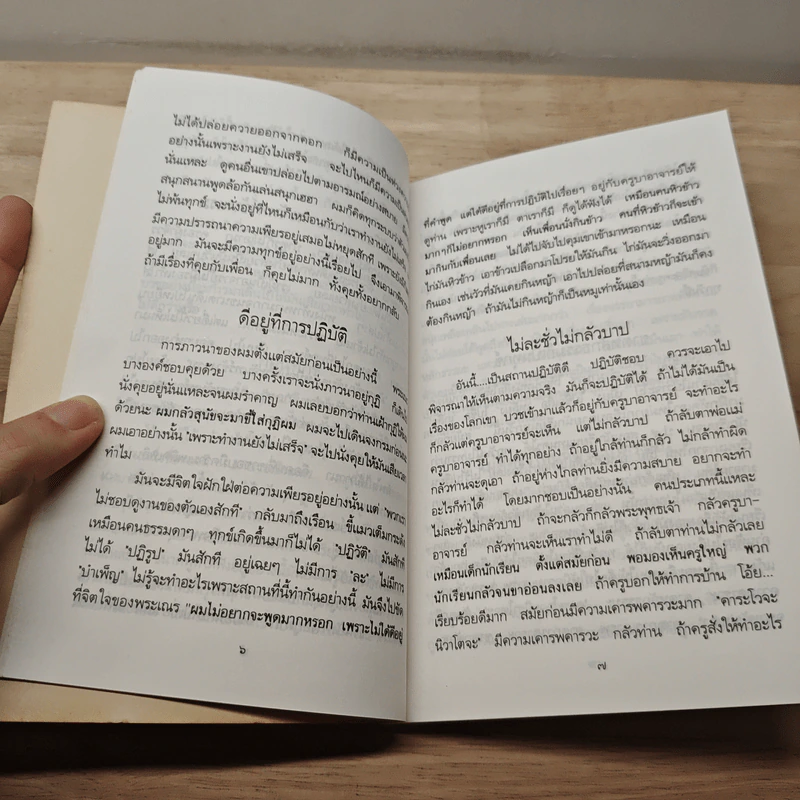 ไม่ได้ปล่อยควายออกจากคอก ก็มีความเป็นห่วง
อย่างนั้นเพราะงานยังไม่เสร็จ จะไปไหนก็มีความเป็น
นั่นแหละ ดูคนอื่นเขาปล่อยไปตามอารมณ์อย่างสบาย
สนุกสนานพูดล้อกันเล่นสนุกเฮฮา ผมก็คิดทุกระบบว่า
ไม่พ้นทุกข์ จะนั่งอยู่ที่ไหนก็เหมือนกับว่าเราทำงานยังไม่
มีความปรารถนาความเพียรอยู่เสมอไม่หยุดสักที เพราะยัง
อยู่มาก มันจะมีความทุกข์อยู่อย่างนี้เรื่อยไป จึงเอามา
ถ้ามีเรื่องที่คุยกับเพื่อน ก็คุยไม่มาก ทั้งคุยทั้งอยากกลับ
ดีอยู่ที่การปฏิบัติ
การภาวนาของผมตั้งแต่สมัยก่อนเป็นอย่างนี้
บางองค์ชอบคุยด้วย บางครั้งเราจะนั่งภาวนาอยู่กุฏิ ก็
นั่งคุยอยู่นั่นแหละจนผมรำคาญ ผมเลยบอกว่าท่านเฝ้ากุฏิให้
ด้วยนะ ผมกลัวสุนัขจะมาขี้ใส่กุฏิผม ผมจะไปเดินจงกรมก่อน
ผมเอาอย่างนั้น "เพราะทำงานยังไม่เสร็จ" จะไปนั่งคุยให้มันเสียเวลา
ทำไม
มันจะมีจิตใจฝักใฝ่ต่อความเพียรอยู่อย่างนั้น แต่ "พวกเรา
ไม่ชอบดูงานของตัวเองสักที" กลับมาถึงเรือน ขี้แมวเต็มกระด้ง
เหมือนคนธรรมดาๆ ทุกข์เกิดขึ้นมาก็ไม่ได้ "ปฏิวัติ" มันสักที
ไม่ได้ "ปฏิรูป" มันสักที อยู่เฉยๆ ไม่มีการ "ละ" ไม่มีการ
"บำเพ็ญ" ไม่รู้จะทำอะไรเพราะสถานที่นี้ทำกันอย่างนี้ มันจึงไปขัด
ที่จิตใจของพระเณร "ผมไม่อยากจะพูดมากหรอก เพราะไม่ได้ดีอยู่
๖
ที่คำพูด แต่ได้ดีอยู่ที่การปฏิบัติไปเรื่อยๆ อยู่กับครูบาอาจารย์ให้
ดูท่าน เพราะหูเราก็มี ตาเราก็มี ก็ดูได้ฟังได้ เหมือนคนหิวข้าว
มากๆก็ไม่อยากหรอก เห็นเพื่อนนั่งกินข้าว คนที่หิวข้าวก็จะเข้า
มากินกับเพื่อนเลย ไม่ได้ไปจับไปคุมเขาเข้ามาหรอกนะ เหมือน
ไก่มันหิวข้าว เอาข้าวเปลือกมาโปรยให้มันกิน ไก่มันจะวิ่งออกมา
กินเอง เช่นวัวที่มันเคยกินหญ้า เอาไปปล่อยที่สนามหญ้ามันก็คง
ต้องกินหญ้า ถ้ามันไม่กินหญ้าก็เป็นหมูเท่านั้นเอง
ไม่ละชั่วไม่กลัวบาป
อันนี้....เป็นสถานปฏิบัติดี ปฏิบัติชอบ ควรจะเอาไป
พิจารณาให้เห็นตามความจริง มันก็จะปฏิบัติได้ ถ้าไม่ได้มันเป็น
เรื่องของโลกเขา บวชเข้ามาแล้วก็อยู่กับครูบาอาจารย์ จะทำอะไร
ก็กลัวแต่ครูบาอาจารย์จะเห็น แต่ไม่กลัวบาป ถ้าลับตาพ่อแม่
ครูบาอาจารย์ ทำได้ทุกอย่าง ถ้าอยู่ใกล้ท่านก็กลัว ไม่กล้าทำผิด
กลัวท่านจะดุเอา ถ้าอยู่ห่างไกลท่านยิ่งมีความสบาย อยากจะทำ
อะไรก็ทำได้ โดยมากชอบเป็นอย่างนั้น คนประเภทนี้แหละ
ไม่ละชั่วไม่กลัวบาป ถ้าจะกลัวก็กลัวพระพุทธเจ้า กลัวครูบา-
อาจารย์ กลัวท่านจะเห็นเราทำไม่ดี ถ้าลับตาท่านไม่กลัวเลย
เหมือนเด็กนักเรียน ตั้งแต่สมัยก่อน พอมองเห็นครูใหญ่ พวก
นักเรียนกลัวจนขาอ่อนลงเลย ถ้าครูบอกให้ทำการบ้าน โอ้ย...
เรียบร้อยดีมาก สมัยก่อนมีความเคารพคารวะมาก "คาระโวจะ
นิวาโตจะ" มีความเคารพคารวะ กลัวท่าน ถ้าครูสั่งให้ทำอะไร
๗